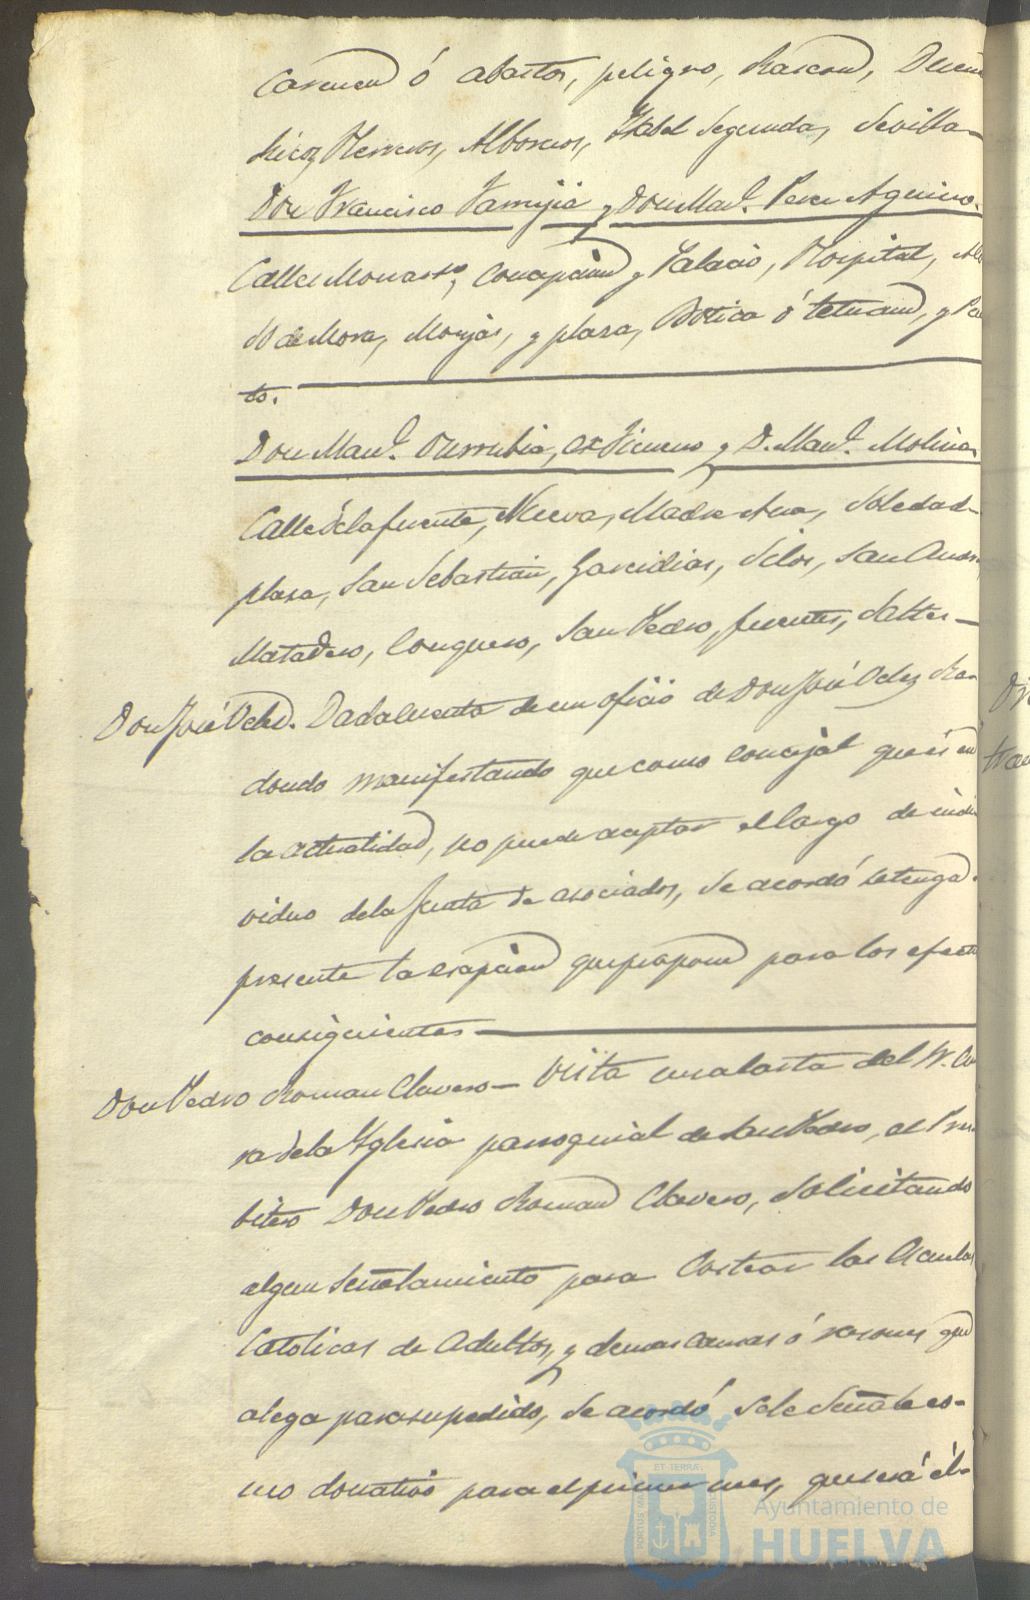 Carmen ó abastos, peligro, Rascon,
Rico, Herreros, Albornos, Isabel Segunda, Sevilla
Don Francisco y Don Manl. Perez Aquino.
Calles Monasto, Concepcion y Palacio, Hospital,
de Mora, Monjas, y plaza, Botica ó tetuan, y Pu
to.
Don Manl. y D. Manl. Molina
Calle de la fuente, Nueva, Madre Ana, Soledad
plaza, San Sebastian, Garcidias, Silos, San Andrs,
Matadero, Conquero, San Pedro, fuentes, Saltes
Don José Velez. Dada cuenta de un oficio de Don José Velez Ra
dondo manifestando que como concejal que és en
la actualidad, no puede aceptar el cargo de indi
viduo de la Junta de asociados, se acordó se tenga
presente la escepcion que propone para los efectos
consiguientes
Don Pedro Roman Clavero Vista una carta del Sr. Cu
ra de la Yglesia parroquial de San Pedro, el Pres
bitero Don Pedro Roman Clavero, Solicitando
algun Señalamiento para Costear las Escuelas
Catolicas de Adultos, y demas causas ó razones que
alega para su pedido, Se acordó Se le Señale co-
mo donativo para el primer mes, que será él
Ayuntamiento de
HUELVA